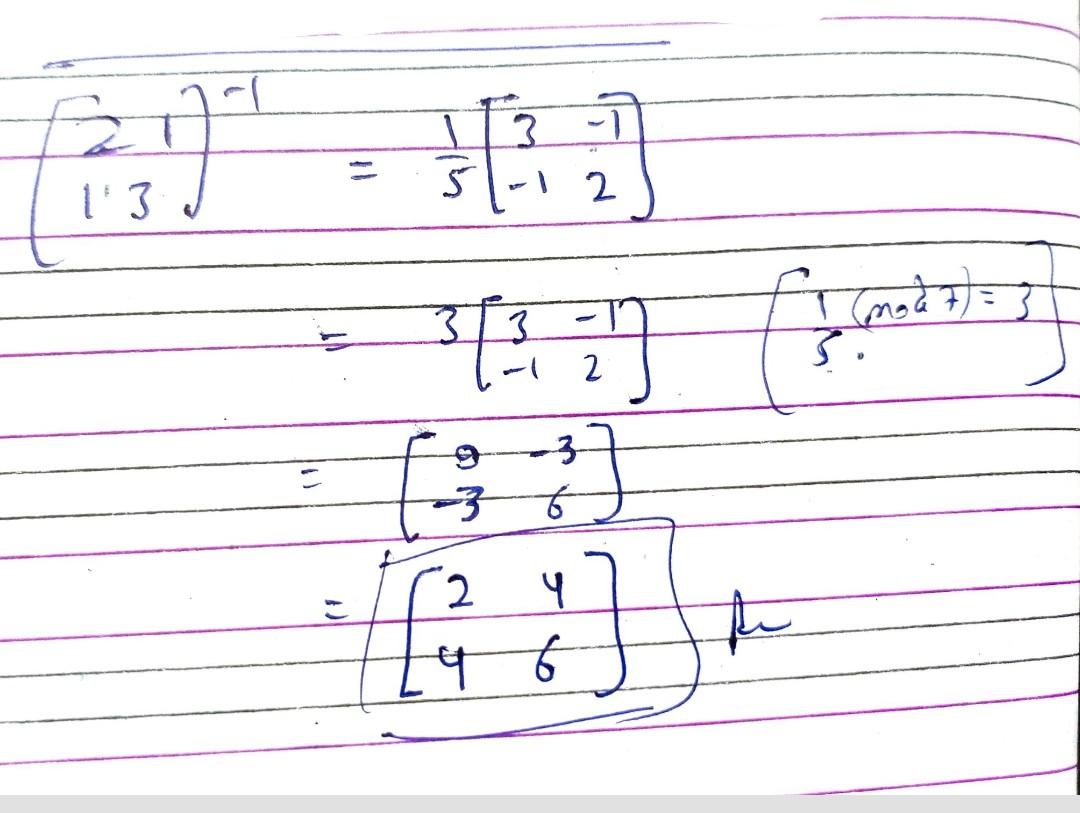 [2 1
1 3]^-1 = 1/5 [3 -1
-1 2]
= 3 [3 -1
-1 2] [1/5 (mod 7) = 3]
= [9 -3
-3 6]
= [2 4
4 6]